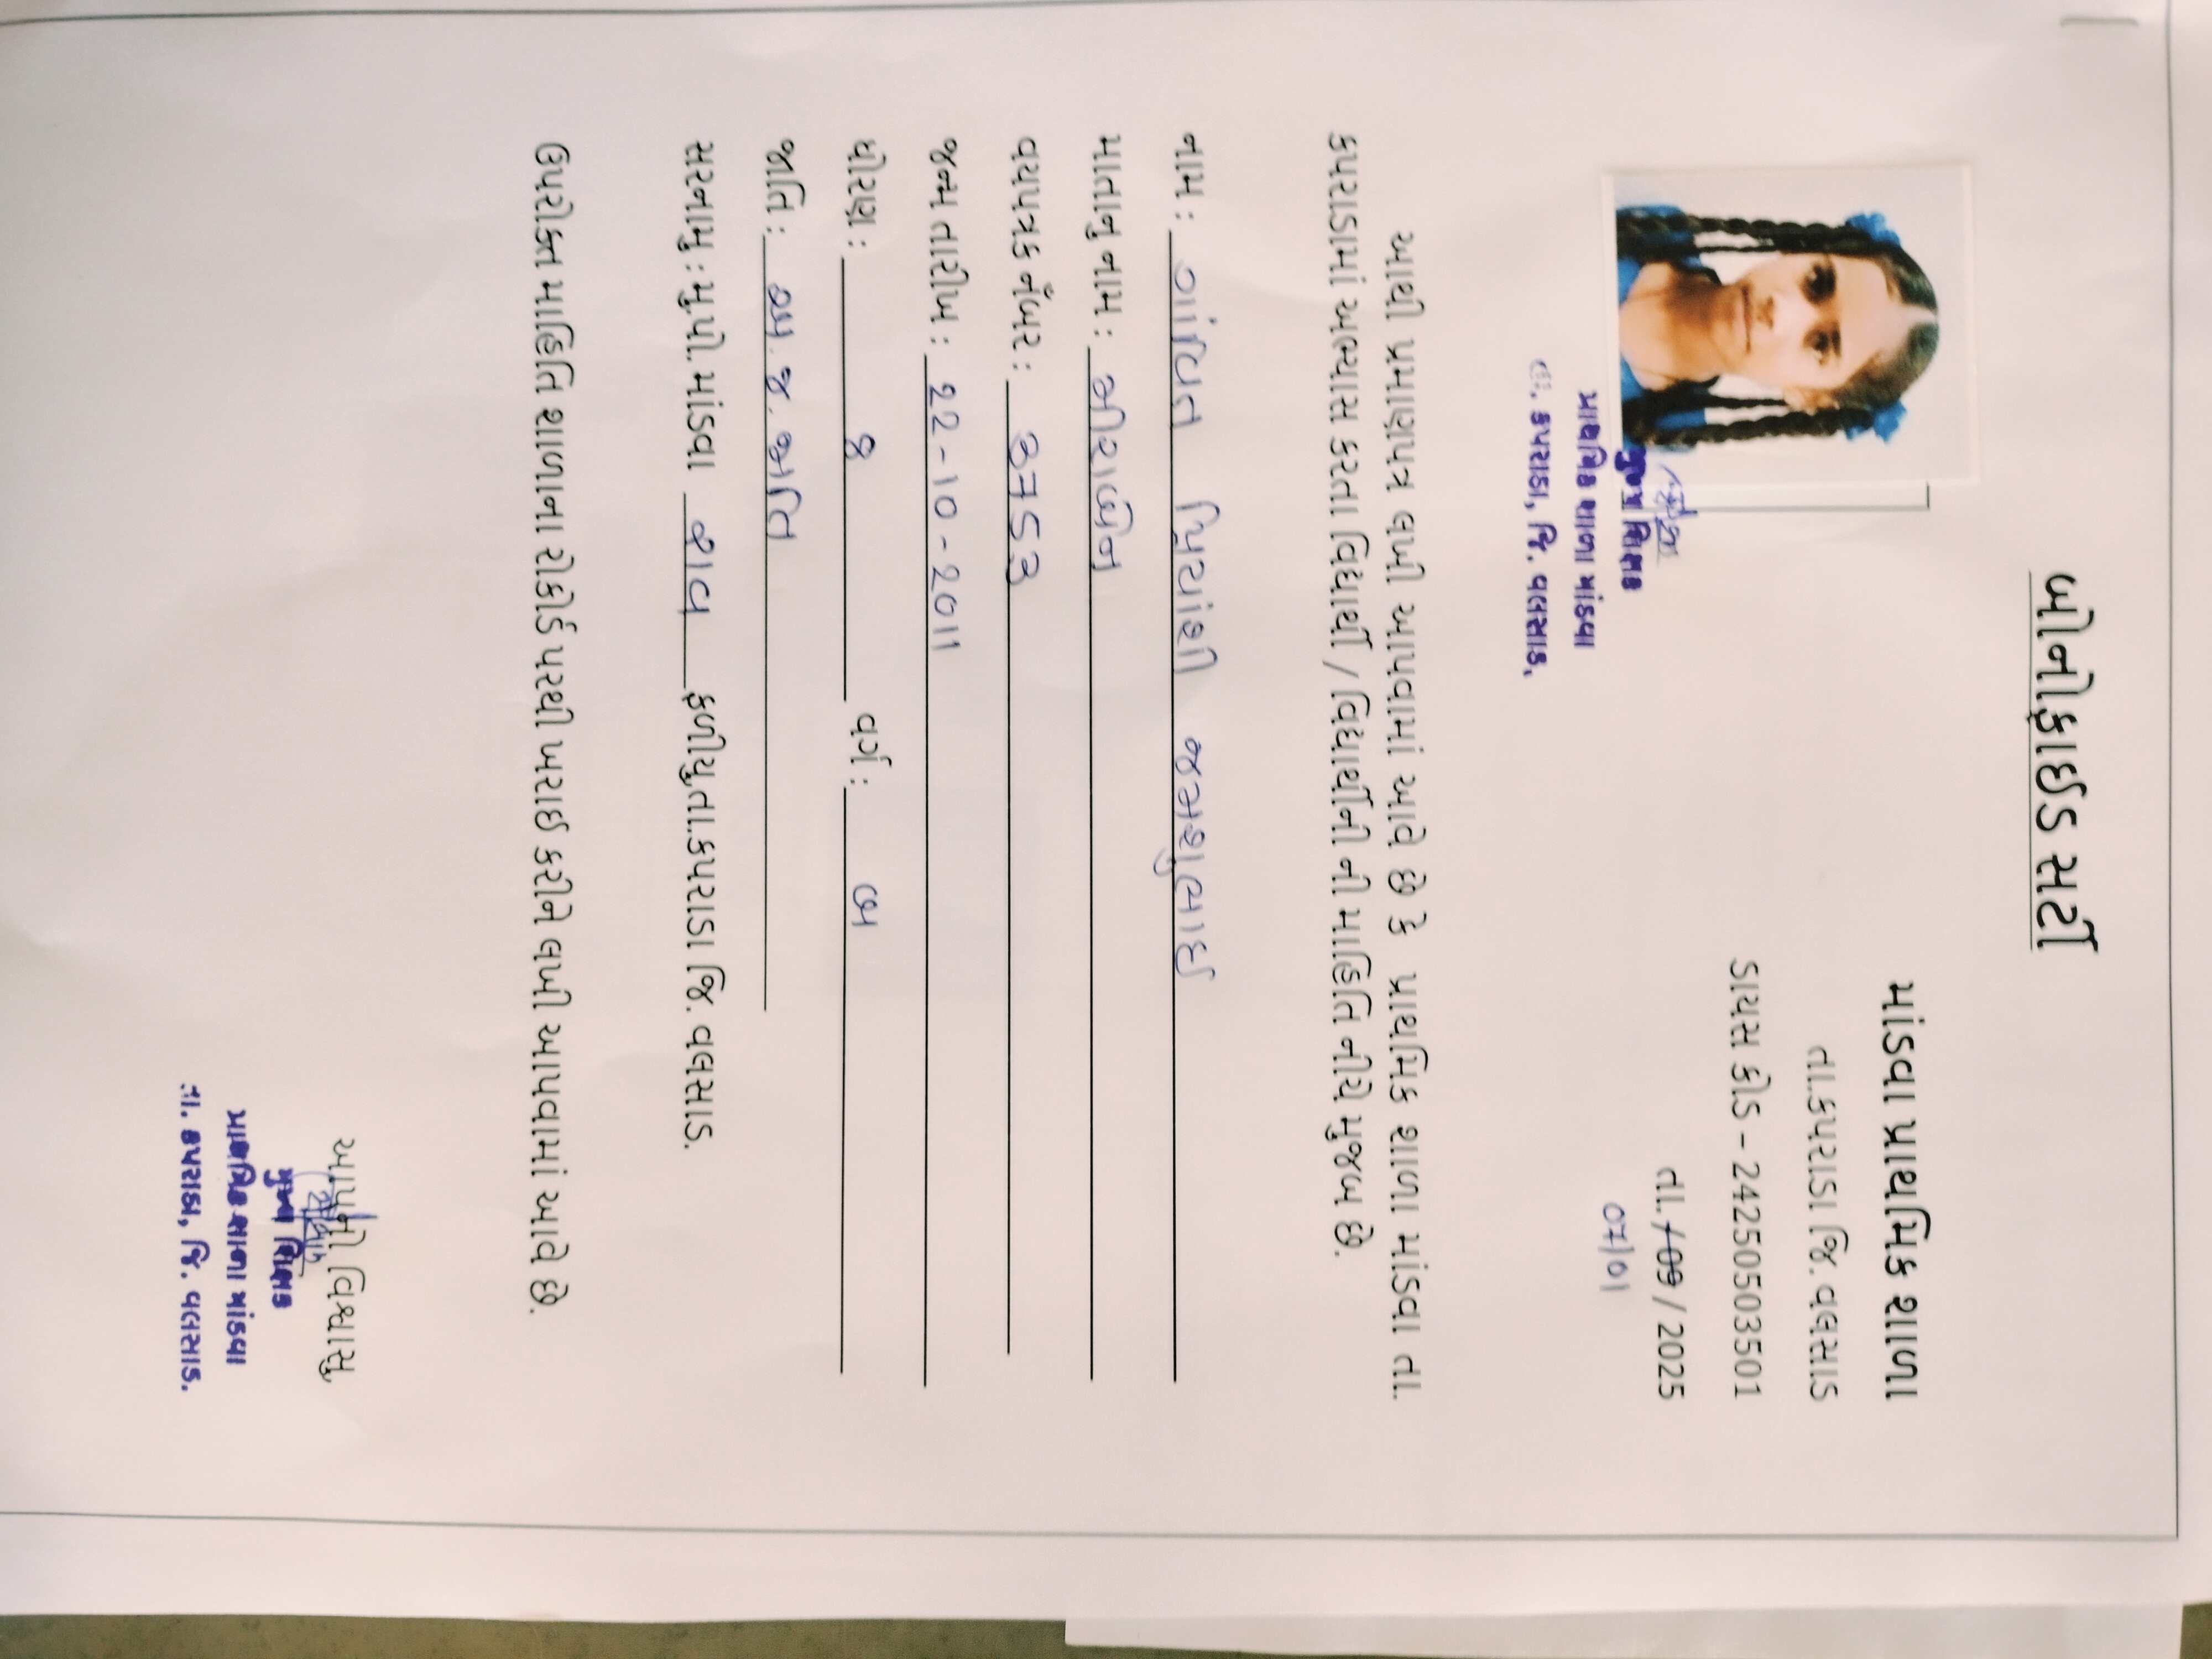 બોનોફાઈડ સર્ટી
માંડવા પ્રાથમિક શાળા
તા.કપરાડા જિ. વલસાડ
ડાયસ કોડ – 24250503501
તા. / 09 / 2025
07/01
મુખ્ય શિક્ષક
પ્રાથમિક શાળા માંડવા
તા. કપરાડા, જિ. વલસાડ,
આથી પ્રમાણપત્ર લખી આપવામાં આવે છે કે પ્રાથમિક શાળા માંડવા તા.
કપરાડામાં અભ્યાસ કરતા વિદ્યાર્થી / વિદ્યાર્થીની ની માહિતિ નીચે મુજબ છે.
નામ : ગાંવિત પ્રિયાંશી જમશુભાઇ
માતાનુ નામ : મીરાબેન
વયપત્રક નંબર : 8753
જન્મ તારીખ : 22-10-2011
ધોરણ : 8 વર્ગ : બ
જાતિ : અ.જ.જાતિ
સરનામુ : મુ.પો. માંડવા ફળીયુ.તા.કપરાડા જિ. વલસાડ.
ઉપરોક્ત માહિતિ શાળાના રેકોર્ડ પરથી ખરાઈ કરીને લખી આપવામાં આવે છે.
આપનો વિશ્વાસુ
મુખ્ય શિક્ષક
પ્રાથમિક શાળા માંડવા
તા. કપરાડા, જિ. વલસાડ.